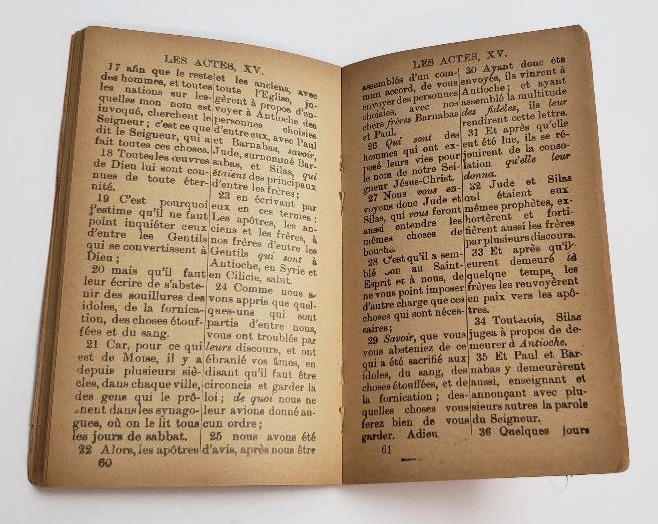 LES ACTES, XV.
17 afin que le reste
des hommes, et toutes
les nations sur les-
quelles mon nom est
invoqué, cherchent le
Seigneur; c'est ce que
dit le Seigneur, qui a
fait toutes ces choses.
18 Toutes les œuvres
de Dieu lui sont con-
nues de toute éter-
nité.
19 C'est pourquoi
j'estime qu'il ne faut
point inquiéter ceux
d'entre les Gentils
qui se convertissent à
Dieu;
20 mais qu'il faut
leur écrire de s'abste-
nir des souillures des
idoles, de la fornica-
tion, des choses étouf-
fées et du sang.
21 Car, pour ce qui
est de Moïse, il y a
depuis plusieurs siè-
cles, dans chaque ville,
des gens qui le prê-
chent dans les synago-
gues, où on le lit tous
les jours de sabbat.
22 Alors, les apôtres
et les anciens, avec
toute l'Église, ju-
gèrent à propos, d'en-
voyer à Antioche des
personnes choisies
d'entre eux, avec Paul
et Barnabas, savoir,
Jude, surnommé Bar-
sabas, et Silas, qui
étaient des principaux
d'entre les frères;
23 en écrivant par
eux en ces termes:
Les apôtres, les an-
ciens et les frères, à
nos frères d'entre les
Gentils qui sont à
Antioche, en Syrie et
en Cilicie, salut.
24 Comme nous a-
vons appris que quel-
ques-uns qui sont
partis d'entre nous,
vous ont troublés par
leurs discours, et ont
ébranlé vos âmes, en
disant qu'il faut être
circoncis et garder la
loi; de quoi nous ne
leur avions donné au-
cun ordre;
25 nous avons été
d'avis, après nous être
60
LES ACTES, XV.
assemblés d'un com-
mun accord, de vous
envoyer des personnes
choisies, avec nos
chers frères Barnabas
et Paul.
26 Qui sont des
hommes qui ont ex-
posé leurs vies pour
le nom de notre Sei-
gneur Jésus-Christ.
27 Nous vous en-
voyons donc Jude et
Silas, qui vous feront
aussi entendre les
mêmes choses de
bouche.
28 C'est qu'il a sem-
blé bon au Saint-
Esprit et à nous, de
ne vous point imposer
d'autre charge que ces
choses qui sont néces-
saires;
29 Savoir, que vous
vous absteniez de ce
qui a été sacrifié aux
idoles, du sang, des
choses étouffées, et de
la fornication; des-
quelles choses vous
ferez bien de vous
garder. Adieu.
30 Ayant donc été
envoyés, ils vinrent à
Antioche; et ayant
assemblé la multitude
des fidèles, ils leur
rendirent cette lettre.
31 Et après qu'elle
eut été lue, ils se ré-
jouirent de la conso-
lation qu'elle leur
donna.
32 Jude et Silas
qui étaient eux-
mêmes prophètes, ex-
hortèrent et forti-
fièrent aussi les frères
par plusieurs discours.
33 Et après qu'ils
eurent demeuré là
quelque temps, les
frères les renvoyèrent
en paix vers les apô-
tres.
34 Toutefois, Silas
jugea à propos de de-
meurer à Antioche.
35 Et Paul et Bar-
nabas y demeurèrent
aussi, enseignant et
annonçant avec plu-
sieurs autres la parole
du Seigneur.
36 Quelques jours
61